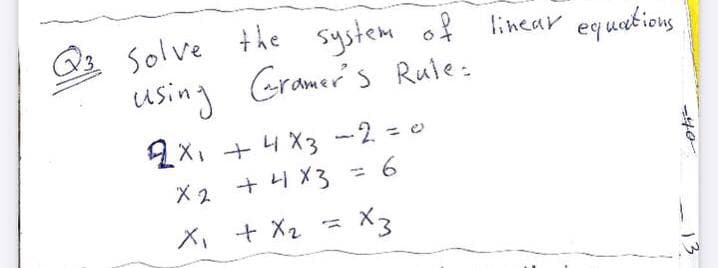 Q3 Solve the system of linear equations
using Cramer's Rule:
2X₁ + 4X₃ - 2 = 0
X₂ + 4X₃ = 6
X₁ + X₂ = X₃
-40
13